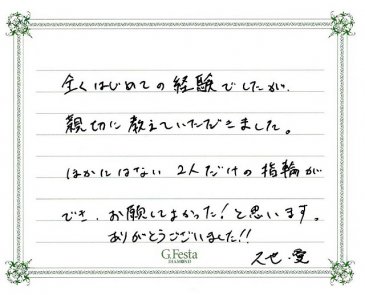 全くはじめての経験でしたが、
親切に教えていただきました。
ほかにはない 2人だけの指輪が
でき、お願してよかった!と思います。
ありがとうございました!!
久也・愛
G.Festa
DIAMOND